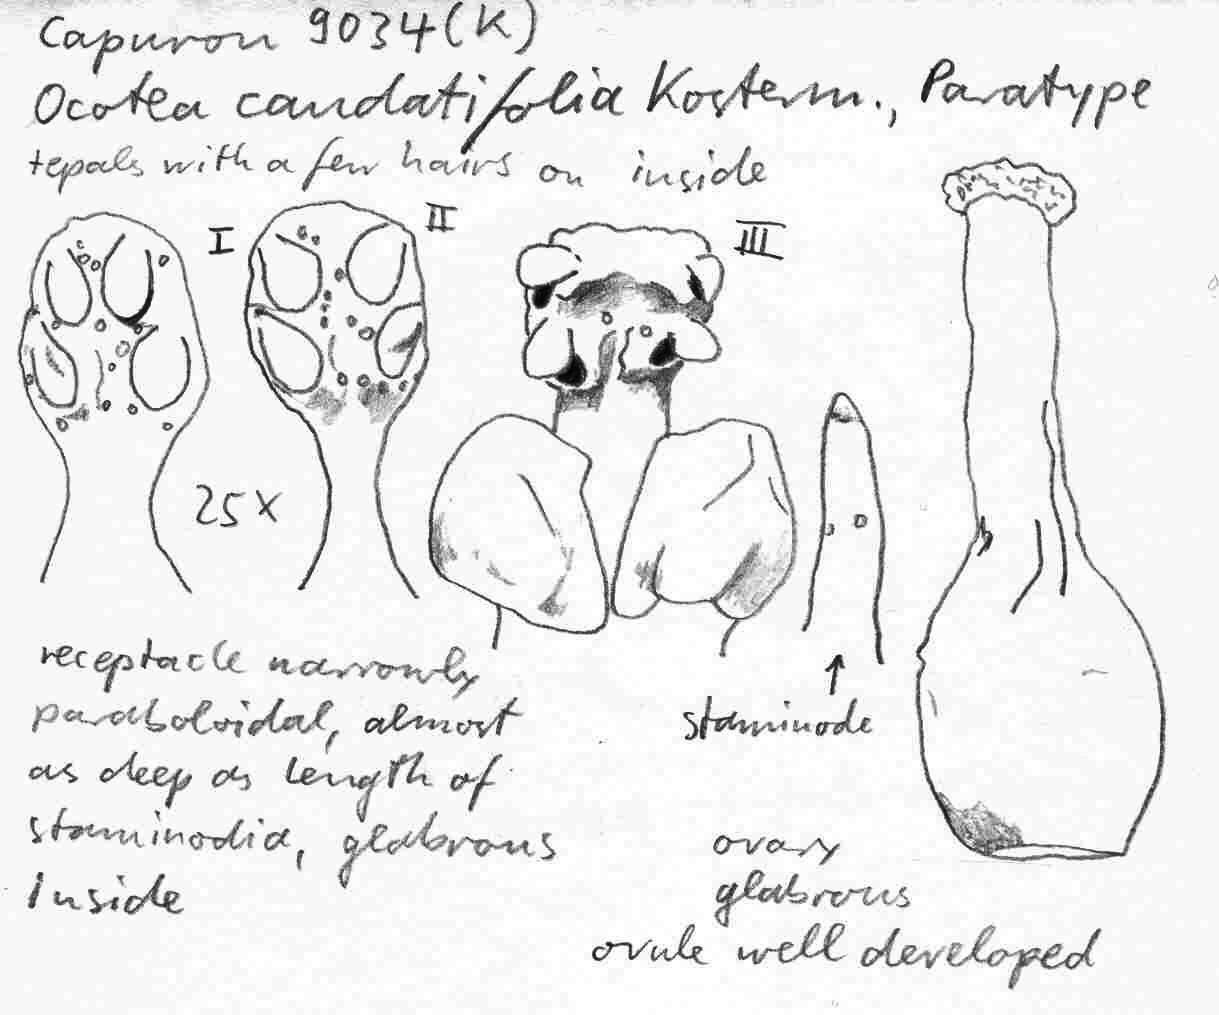 Capuron 9034(K)
Ocotea caudatifolia Kosterm., Paratype
tepals with a few hairs on inside
I
II
III
25x
receptacle narrowly
paraboloidal, almost
as deep as length of
staminodia, glabrous
inside
staminode
ovary
glabrous
ovule well developed